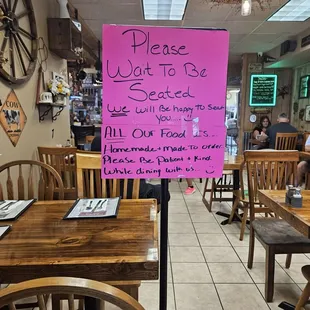 Please
Wait To Be
Seated
We will be happy to seat
you
ALL Our Food is...
Homemade + made to order
Please Be Patient + Kind
While dining with us...
COW